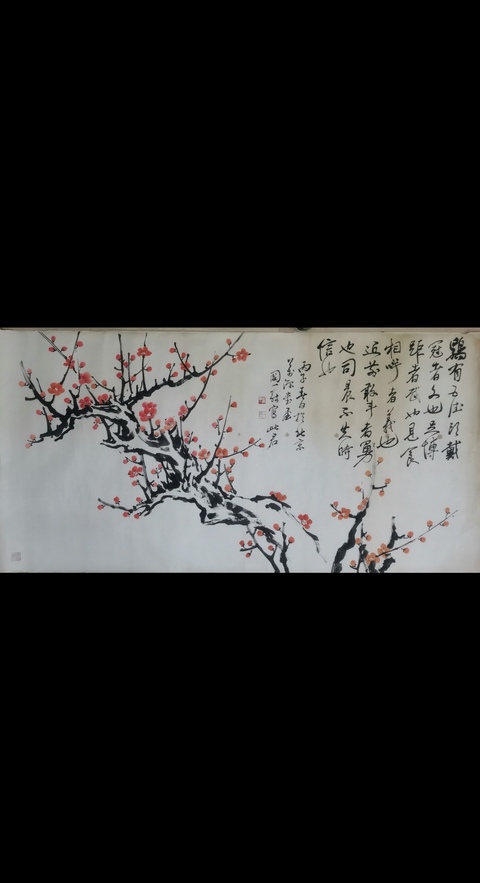 鷄有五德頭戴
冠者文也足傅
距者武也見食
相呼者義也
追敵敢斗者勇
也司晨不失時
信也
丙子春日於北京
國一 寫此君